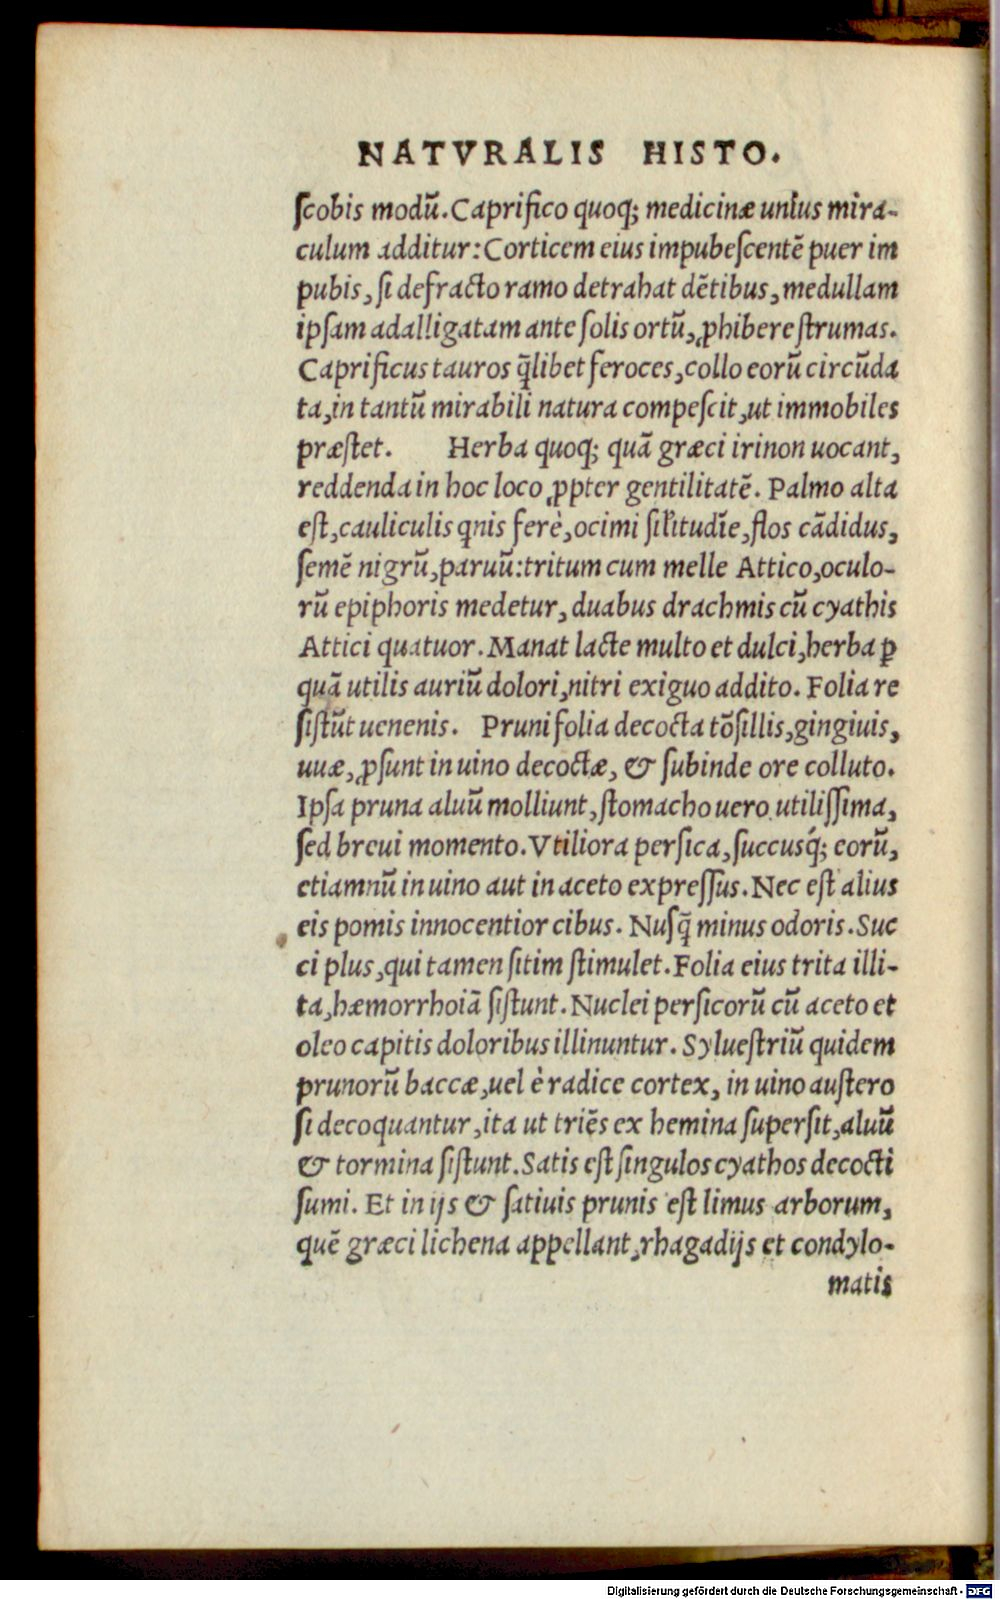 NATVRALIS HISTO.
ſcobis modū. Caprifico quoq; medicinæ unius mira-
culum additur: Corticem eius impubeſcentē puer im
pubis, ſi defracto ramo detrahat dētibus, medullam
ipſam adalligatam ante ſolis ortū, ꝓhibere ſtrumas.
Caprificus tauros q̄libet feroces, collo eorū circūda
ta, in tantū mirabili natura compeſcit, ut immobiles
præſtet. Herba quoq; quā græci irinon uocant,
reddenda in hoc loco ꝓpter gentilitatē. Palmo alta
eſt, cauliculis qnis ferè, ocimi ſil'itudīe, flos cādidus,
ſemē nigrū, paruū: tritum cum melle Attico, oculo-
rū epiphoris medetur, duabus drachmis cū cyathis
Attici quatuor. Manat lacte multo et dulci, herba ꝑ
quā utilis auriū dolori, nitri exiguo addito. Folia re
ſiſtūt uenenis. Pruni folia decocta tōſillis, gingiuis,
uuæ, ꝓſunt in uino decoctæ, & ſubinde ore colluto.
Ipſa pruna aluū molliunt, ſtomacho uero utiliſſima,
ſed breui momento. Vtiliora perſica, ſuccusq́; eorū,
etiamnū in uino aut in aceto expreſſus. Nec eſt alius
eis pomis innocentior cibus. Nuſq̄ minus odoris. Suc
ci plus, qui tamen ſitim ſtimulet. Folia eius trita illi-
ta, hæmorrhoiā ſiſtunt. Nuclei perſicorū cū aceto et
oleo capitis doloribus illinuntur. Sylueſtriū quidem
prunorū baccæ, uel è radice cortex, in uino auſtero
ſi decoquantur, ita ut triēs ex hemina ſuperſit, aluū
& tormina ſiſtunt. Satis eſt ſingulos cyathos decocti
ſumi. Et in ijs & ſatiuis prunis eſt limus arborum,
quē græci lichena appellant, rhagadijs et condylo-
matis
Digitalisierung gefördert durch die Deutsche Forschungsgemeinschaft - DFG